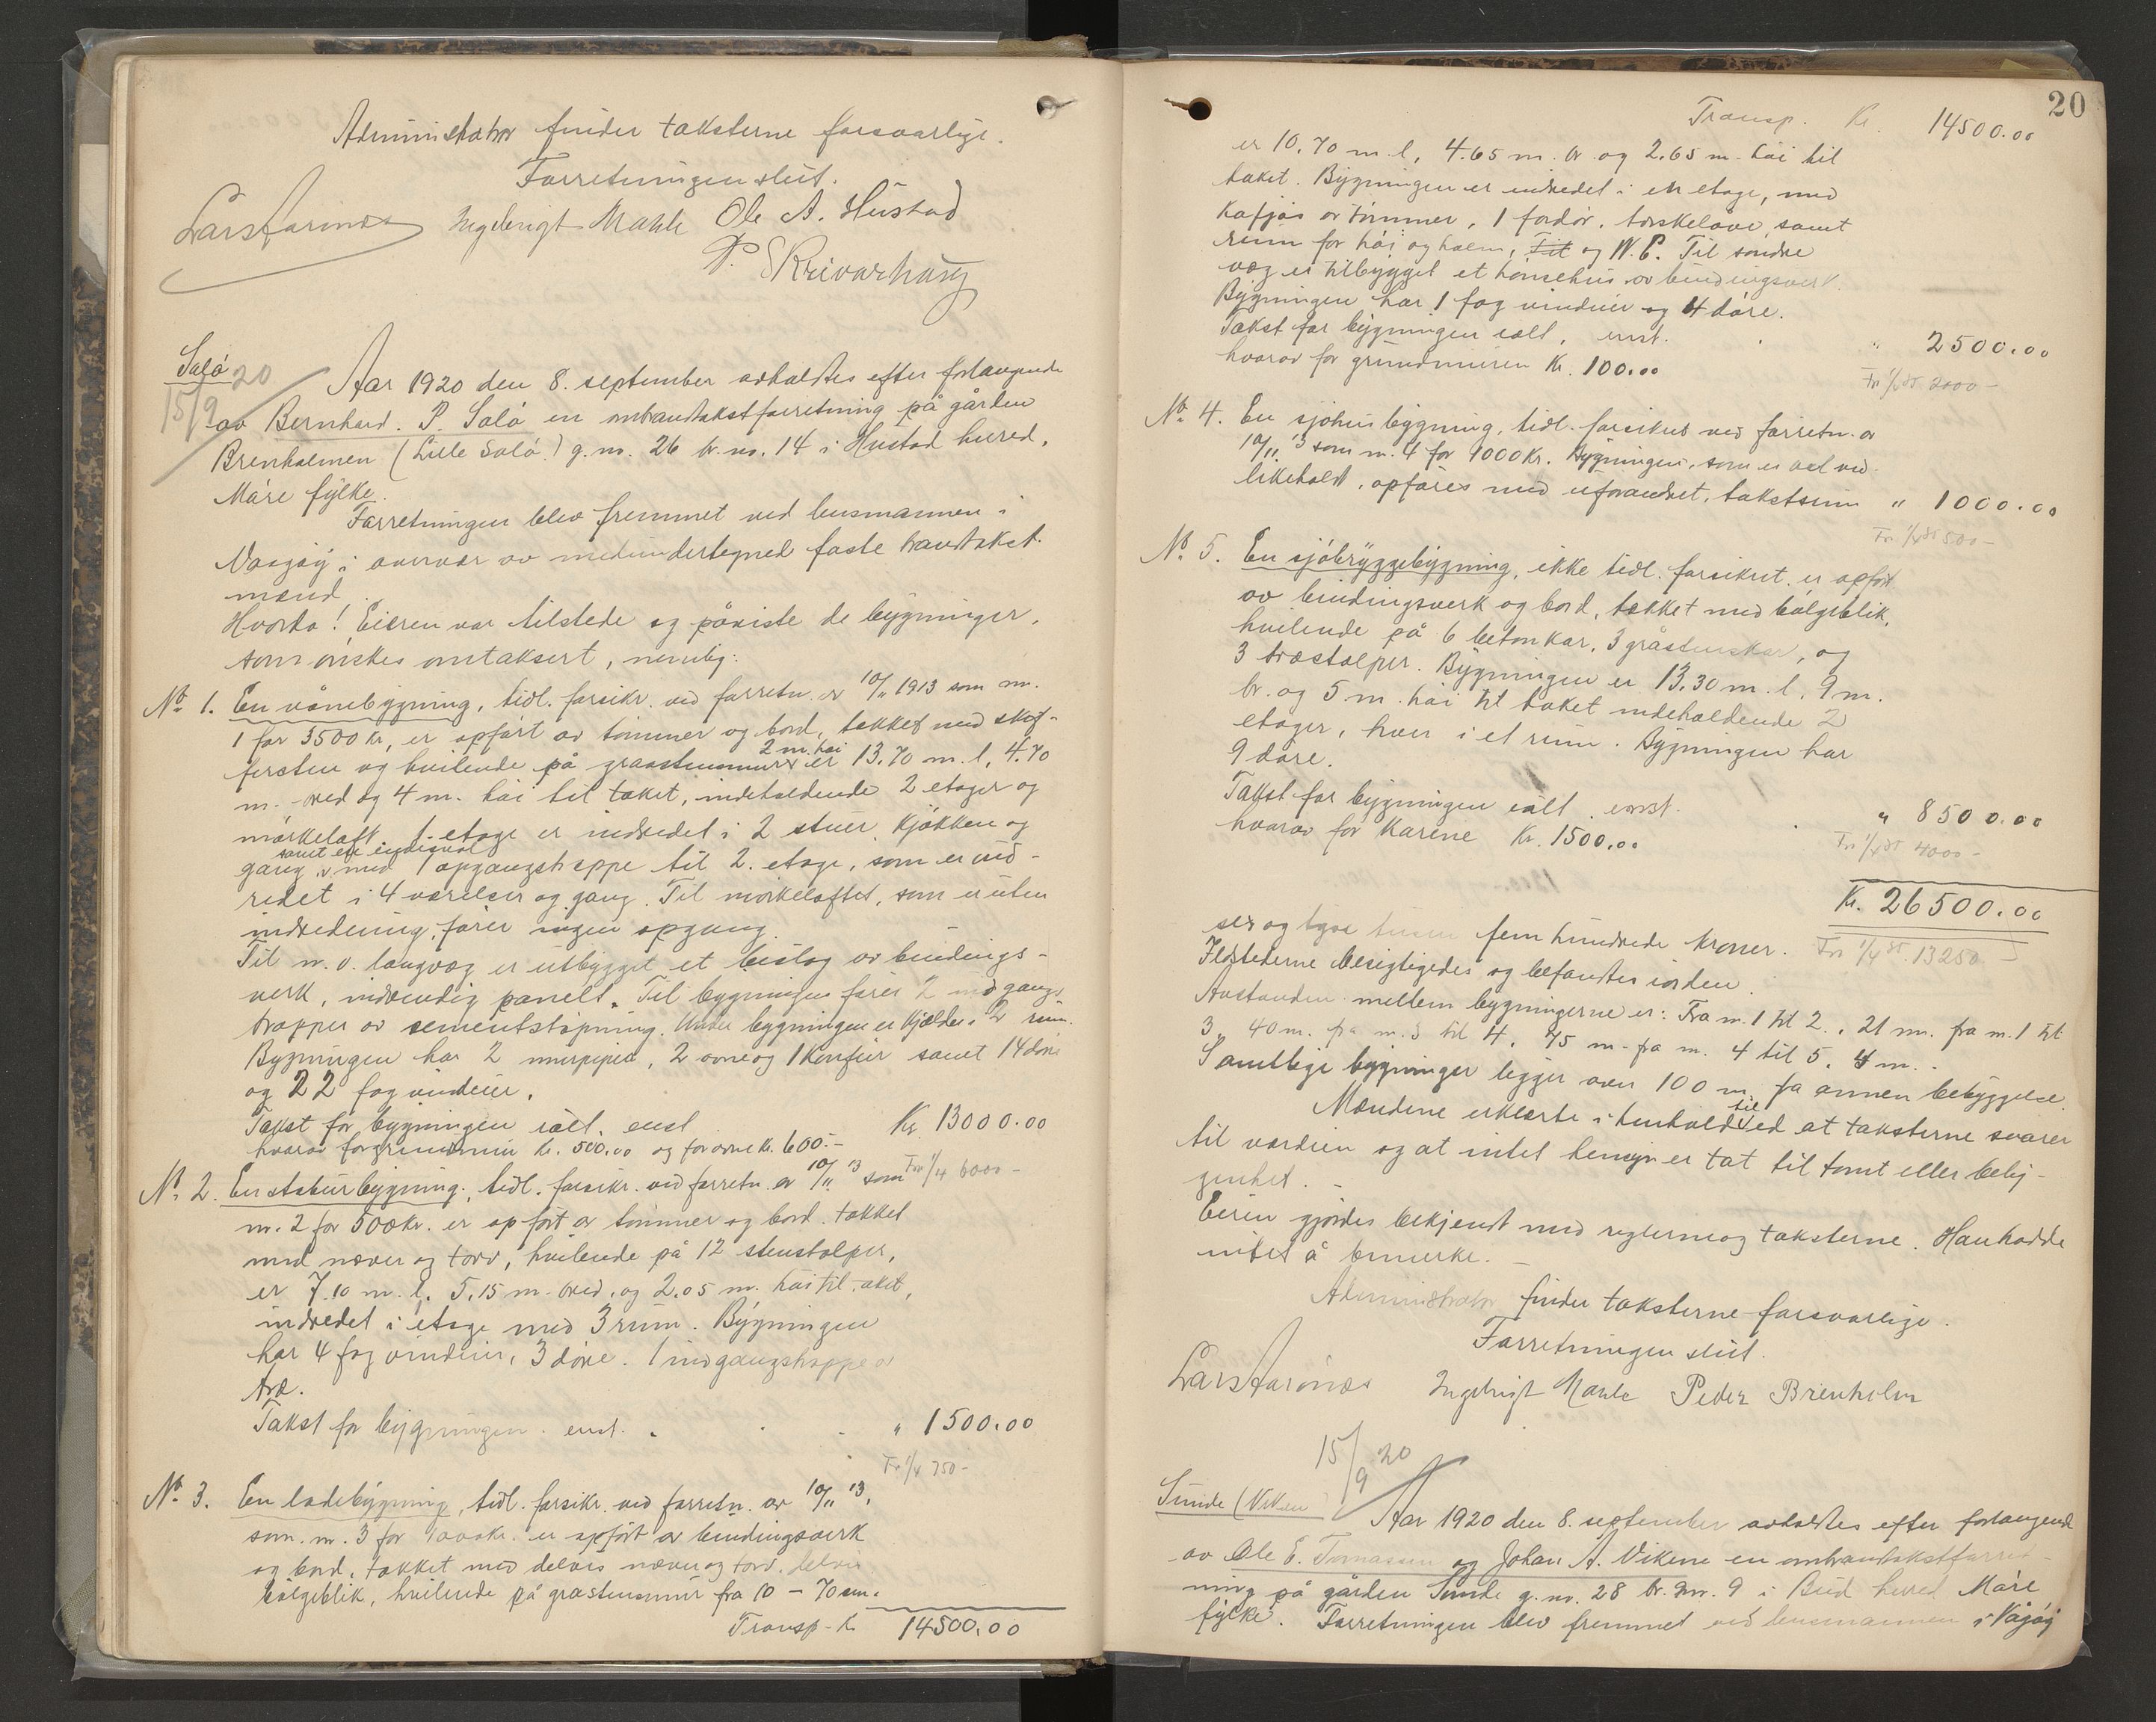 Administrator finder taksterne forsvarlige.
Forretningen slut.
Lars Farinæs Ingebrigt Mahle Ole A. Hustad
P. Skrivarhaug
Saló
15/9 20
Aar 1920 den 8. september avholdtes efter forlangende
av Bernhard. P. Saló en ombrandtakstforretning på gården
Brenholmen (Lille Saló.) g. nr. 26 br. nr. 14 i Hustad hered,
Móre fylke.
Forretningen blev fremmet ved lensmannen i
Vaagóy i overvær av medundertegned faste brandtakst-
mænd.
Hvorda! Eieren var tilstede og påviste de bygninger,
som ónskes omtaksert, nemlig:
No. 1. En vånebygning, tidl. forsikr. ved forretn. av 10/11 1913 som nr.
1 for 3500 kr, er opfórt av tómmer og bord, tekket med skif-
ferstein og hvilende på graastensmur 2 m. hói er 13.70 m. l, 4.70
m. bred og 4 m. hói til taket, indeholdende 2 etager og
mórkeloft. 1. etage er indredet i 2 stuer kjókken og
gang samt ett spiskammer, med 1 opgangstrappe til 2. etage, som er ind-
redet i 4 værelser og gang. Til mórkeloftet, som er uten
indredning, fórer ingen opgang.
Til n. v. langvæg er utbygget et bislag av bindings-
verk, indvendig panelt. Til bygningen fórer 2 indgangs
trapper av sementstópning. Under bygningen er kjælder i 2 rum.
Bygningen har 2 murpiper, 2 ovne og 1 komfur samt 14 dóre
og 22 fag vinduer.
Takst for bygningen ialt, enst. Kr. 13000.00
hvorav for grundmur kr. 500.00 og for ovne kr. 600.-
Frv. 1/4 6000 -
No. 2. En stabursbygning, tidl. forsikr. ved forretn. av 10/11 13 som
nr. 2 for 500 kr. er opfórt av tómmer og bord, tækket
med næver og torv, hvilende på 12 stenstolper,
er 7.10 m. l, 5.15 m. bred, og 2.05 m. hói til taket,
indredet i etage med 3 rum. Bygningen
har 4 fag vinduer, 3 dóre. 1 indgangstrappe av
træ.
Takst for bygningen. enst. " 1500.00
Frv. 1/4 750 -
No. 3. En ladebygning, tidl. forsikr. ved forretn. av 10/11 13,
som nr. 3 for 1000 kr. er opfórt av bindingsverk
og bord, tækket med delvis næver og torv, delvis
bólgeblik, hvilende på graastensmur fra 10 - 70 cm.
Transp. kr. 14500.00
20
Transp. Kr. 14500.00
er 10.70 m. l, 4.65 m. br. og 2.65 m. hói til
taket. Bygningen er indredet i en etage, med
kufjós av tómmer, 1 fordór, tórskelóve, samt
rum for hói og halm, Fit og W.C. Til sóndre
væg er tilbygget et hónsehus av bindingsverk.
Bygningen har 1 fag vinduer og 4 dóre.
Takst for bygningen ialt, enst. " 2500.00
hvorav for grundmuren Kr. 100.00
Frv. 1/4 st. 2000 -
No. 4. En sjóhusbygning, tidl. forsikret ved forretn. av
10/11 13 som nr. 4 for 1000 Kr. Bygningen, som er vel ved-
likeholdt, opfóres med uforandret takstsum " 1000.00
Frv. 1/4 st 500 -
No. 5. En sjóbryggebygning, ikke tidl. forsikret, er opfórt
av bindingsverk og bord, tækket med bólgeblik,
hvilende på 6 betonkar, 3 gråstenskar, og
3 træstolper. Bygningen er 13.30 m. l, 9 m.
br. og 5 m. hói til taket indeholdende 2
etager, hver i et rum. Bygningen har
9 dóre.
Takst for bygningen ialt. enst. " 8500.00
hvorav for karene Kr. 1500.00
Frv 1/4 st 4000 -
Kr. 26500.00
sex og tyve tusen fem hundrede kroner. Frv 1/4 st. 13250 -
Ildstederne besigtigedes og befandtes iorden.
Avstanden mellem bygningerne er: Fra nr. 1 til 2, 21 m. fra nr. 1 til
3, 40 m. fra nr. 3 til 4, 45 m. fra nr. 4 til 5, 4 m.
Samtlige bygninger ligger over 100 m. fra annen bebyggelse.
Mændene erklærte i henhold til ed at taksterne svarer
til værdien og at intet hensyn er tat til tomt eller belig-
genhet. -
Eieren gjórdes bekjendt med reglerne og taksterne. Han hadde
intet å bemerke. -
Administrator finder taksterne forsvarlige.
Forretningen slut.
Lars Farinæs Ingebrigt Mahle Peder Brenholm
15/9 20
Sunde (Viken)
Aar 1920 den 8. september avholdtes efter forlangende
av Ole E. Tomassen og Johan A. Vikene en ombrandtakstforret-
ning på gården Sunde g. nr. 28 br. nr. 9 i Bud hered Móre
fylke. Forretningen blev fremmet ved lensmannen i Vågóy